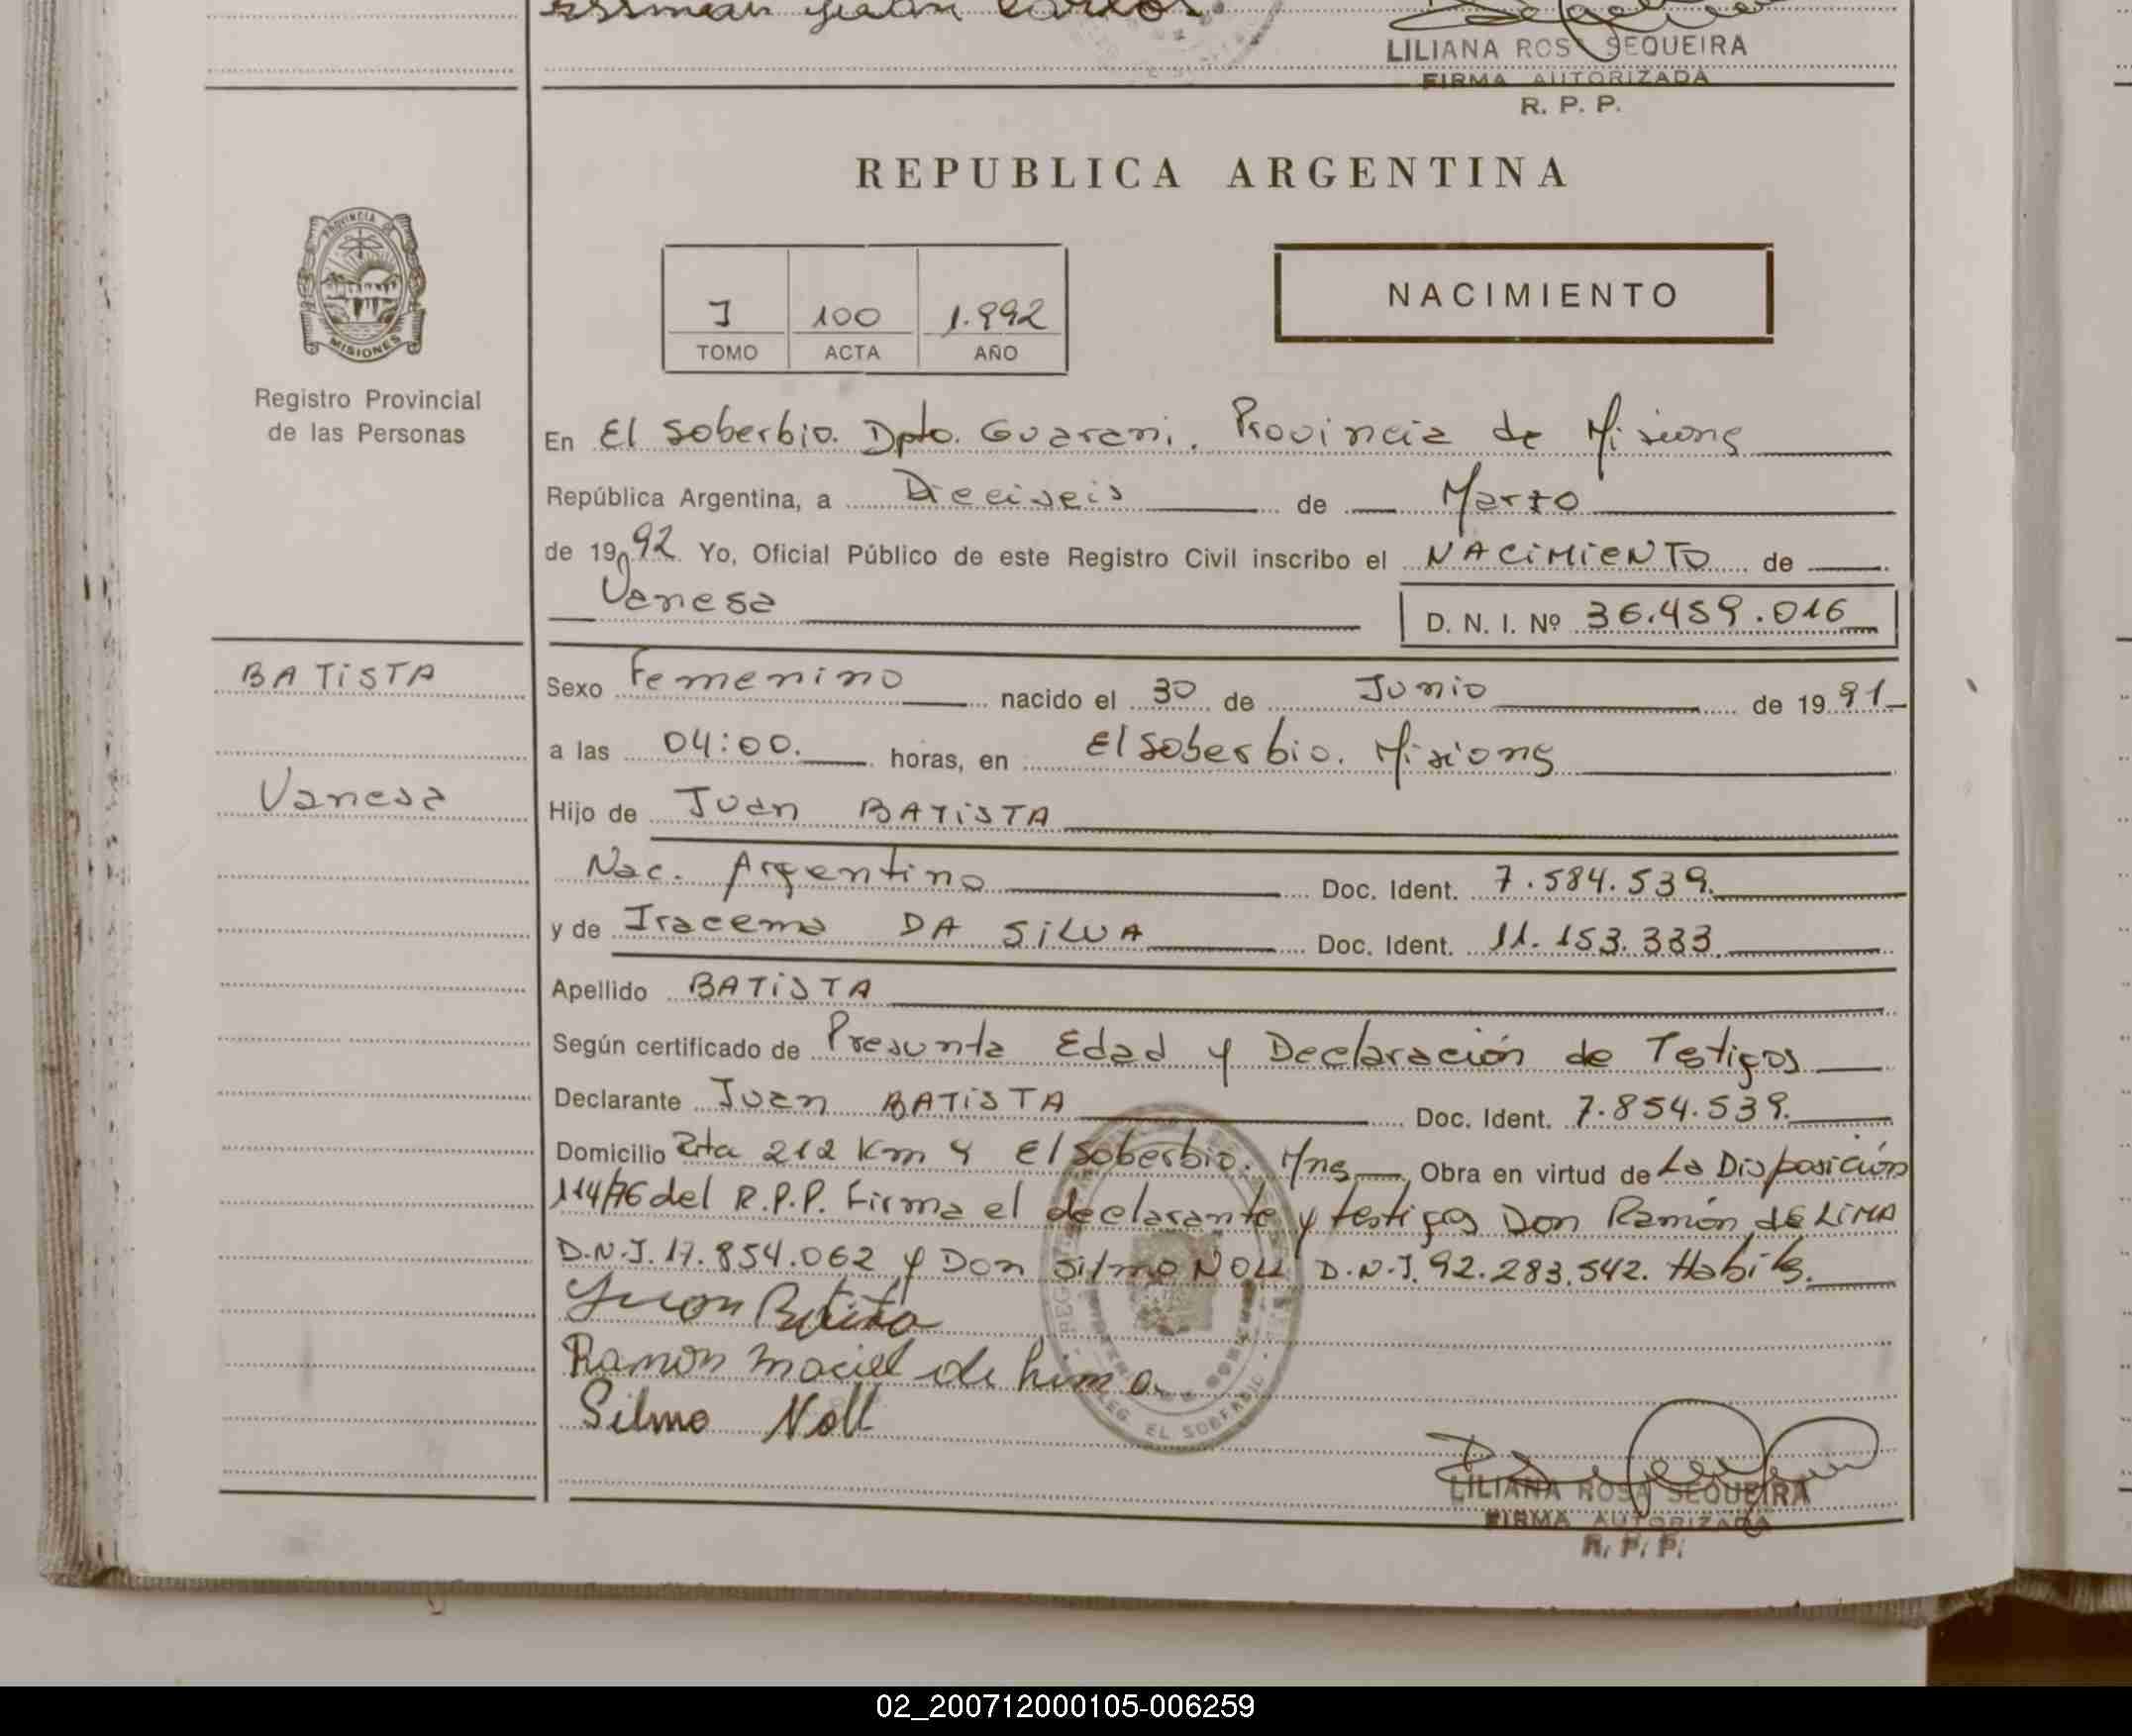 LILIANA ROSA SEQUEIRA
FIRMA AUTORIZADA
R. P. P.
REPUBLICA ARGENTINA
PROVINCIA DE
MISIONES
Registro Provincial
de las Personas
I 100 1.992
TOMO ACTA AÑO
NACIMIENTO
En El Soberbio. Dpto. Guarani. Provincia de Misiones
República Argentina, a Dieciseis de Marzo
de 1992 Yo, Oficial Público de este Registro Civil inscribo el NACIMIENTO de
Vanesa
D. N. I. Nº 36.459.016
BATISTA
Vanesa
Sexo Femenino nacido el 30 de Junio de 1991
a las 04:00. horas, en El Soberbio. Misiones
Hijo de Juan BATISTA
Nac. Argentino Doc. Ident. 7.584.539.
y de Iracema DA SILVA Doc. Ident. 11.153.333.
Apellido BATISTA
Según certificado de Presunta Edad y Declaración de Testigos
Declarante Juan BATISTA Doc. Ident. 7.854.539.
Domicilio Rta 212 Km 4 El Soberbio. Mnes Obra en virtud de La Disposición
114/76 del R.P.P. Firma el declarante y testigos Don Ramón de LIMA
D.N.I. 17.854.062 y Don Silmo NOLL D.N.I. 92.283.542. Habiles.
Juan Batista
Ramon Maciel de Lima
Silmo Noll
LILIANA ROSA SEQUEIRA
FIRMA AUTORIZADA
R. P. P.
02_200712000105-006259